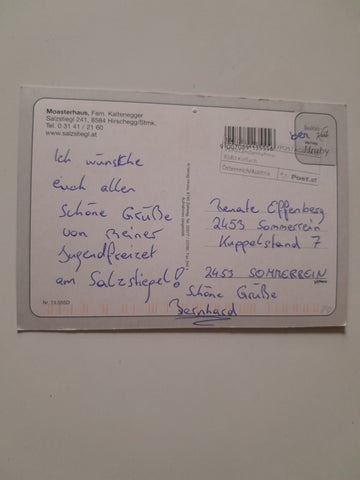 Moasterhaus, Fam. Kaltenegger
Salzstiegl 241, 8584 Hirschegg/Stmk.
Tel. 0 31 41 / 21 60
www.salzstiegl.at
Ich wünsche
euch allen
schöne Grüße
von meiner
Jugendfreizet
am Salzstiegel!
Schöne Grüße
Bernhard
Nr. 13.555D
Österreich/Austria
Post.at
Hruby
Renate Effenberg
2453 Sommerein
Kuppelstand 7
2453 SOMMEREIN